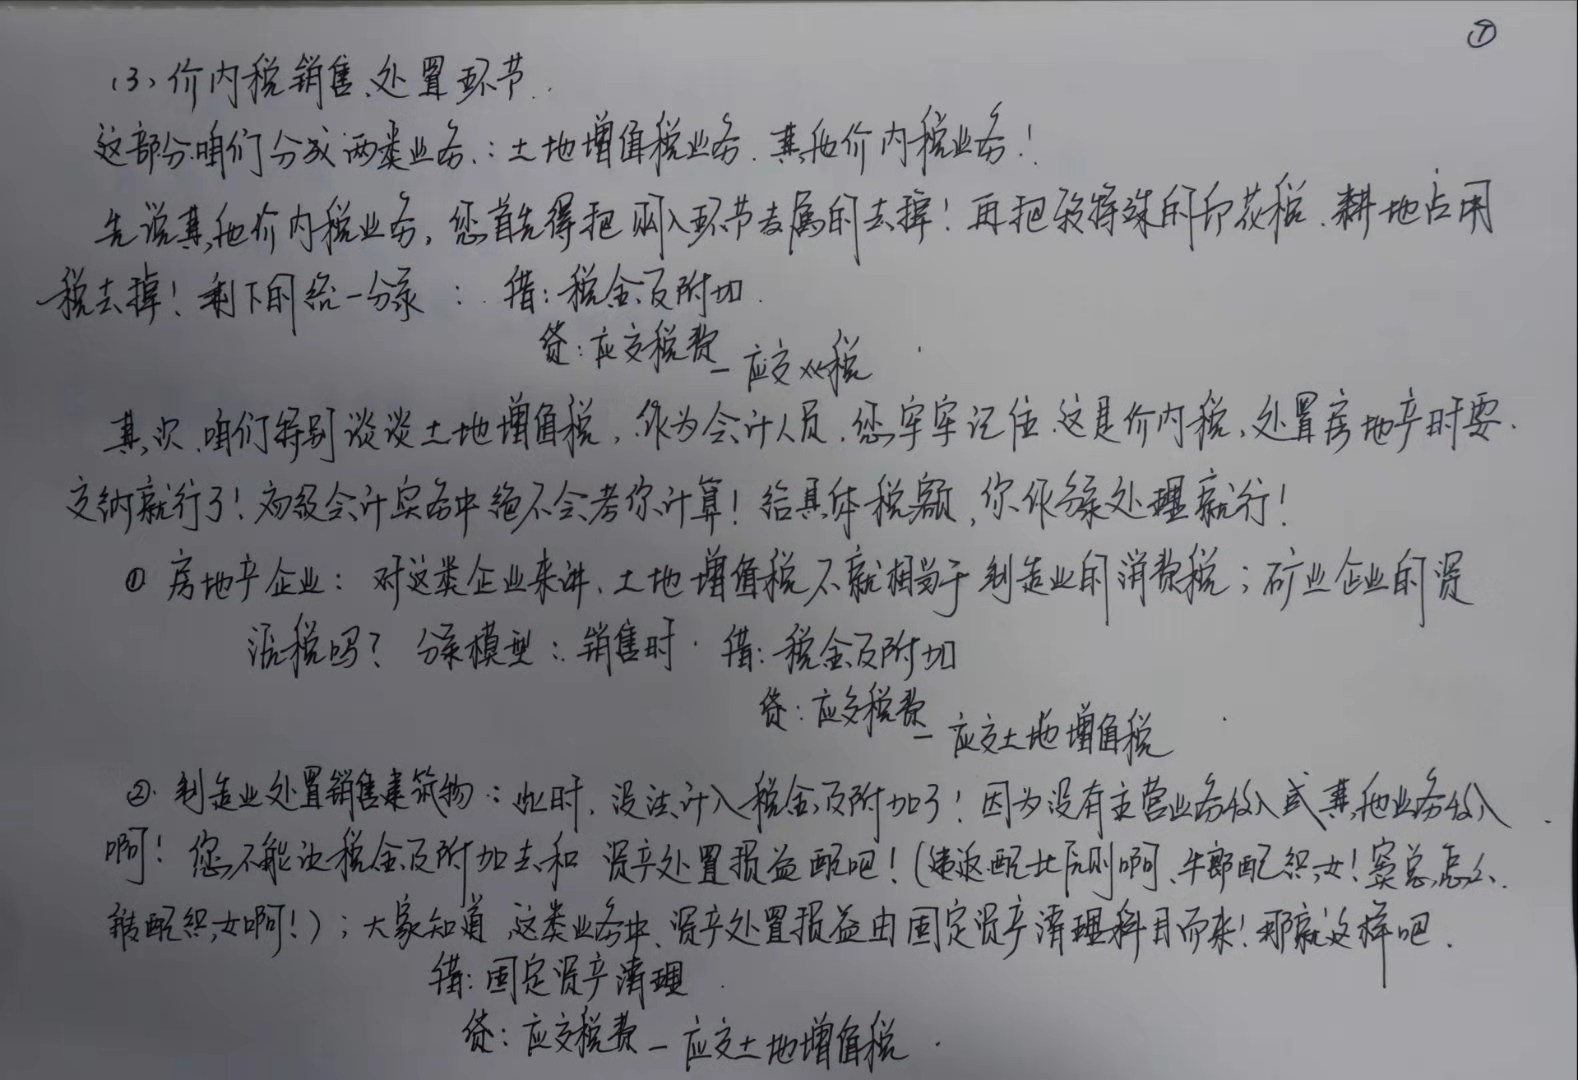 ⑦
(3)、价内税销售、处置环节.
这部分咱们分成两类业务：土地增值税业务、其他价内税业务！
先说其他价内税业务，您首先得把购入环节专属的去掉！再把较特殊的印花税、耕地占用
税去掉！剩下的统一分录：借：税金及附加
贷：应交税费—应交XX税
其次，咱们特别谈谈土地增值税，作为会计人员，您牢牢记住，这是价内税，处置房地产时要
交纳就行了！初级会计实务中绝不会考你计算！给具体税额，你作分录处理就行！
① 房地产企业：对这类企业来讲，土地增值税不就相当于制造业的消费税；矿业企业的资
源税吗？分录模型：销售时 借：税金及附加
贷：应交税费—应交土地增值税
② 制造业处置销售建筑物：此时，没法计入税金及附加了！因为没有主营业务收入或其他业务收入
啊！您不能让税金及附加去和资产处置损益配吧！（违返配比原则啊，牛郎配织女！窦总怎么
能配织女啊！）；大家知道，这类业务中，资产处置损益由固定资产清理科目而来！那就这样吧.
借：固定资产清理
贷：应交税费—应交土地增值税.